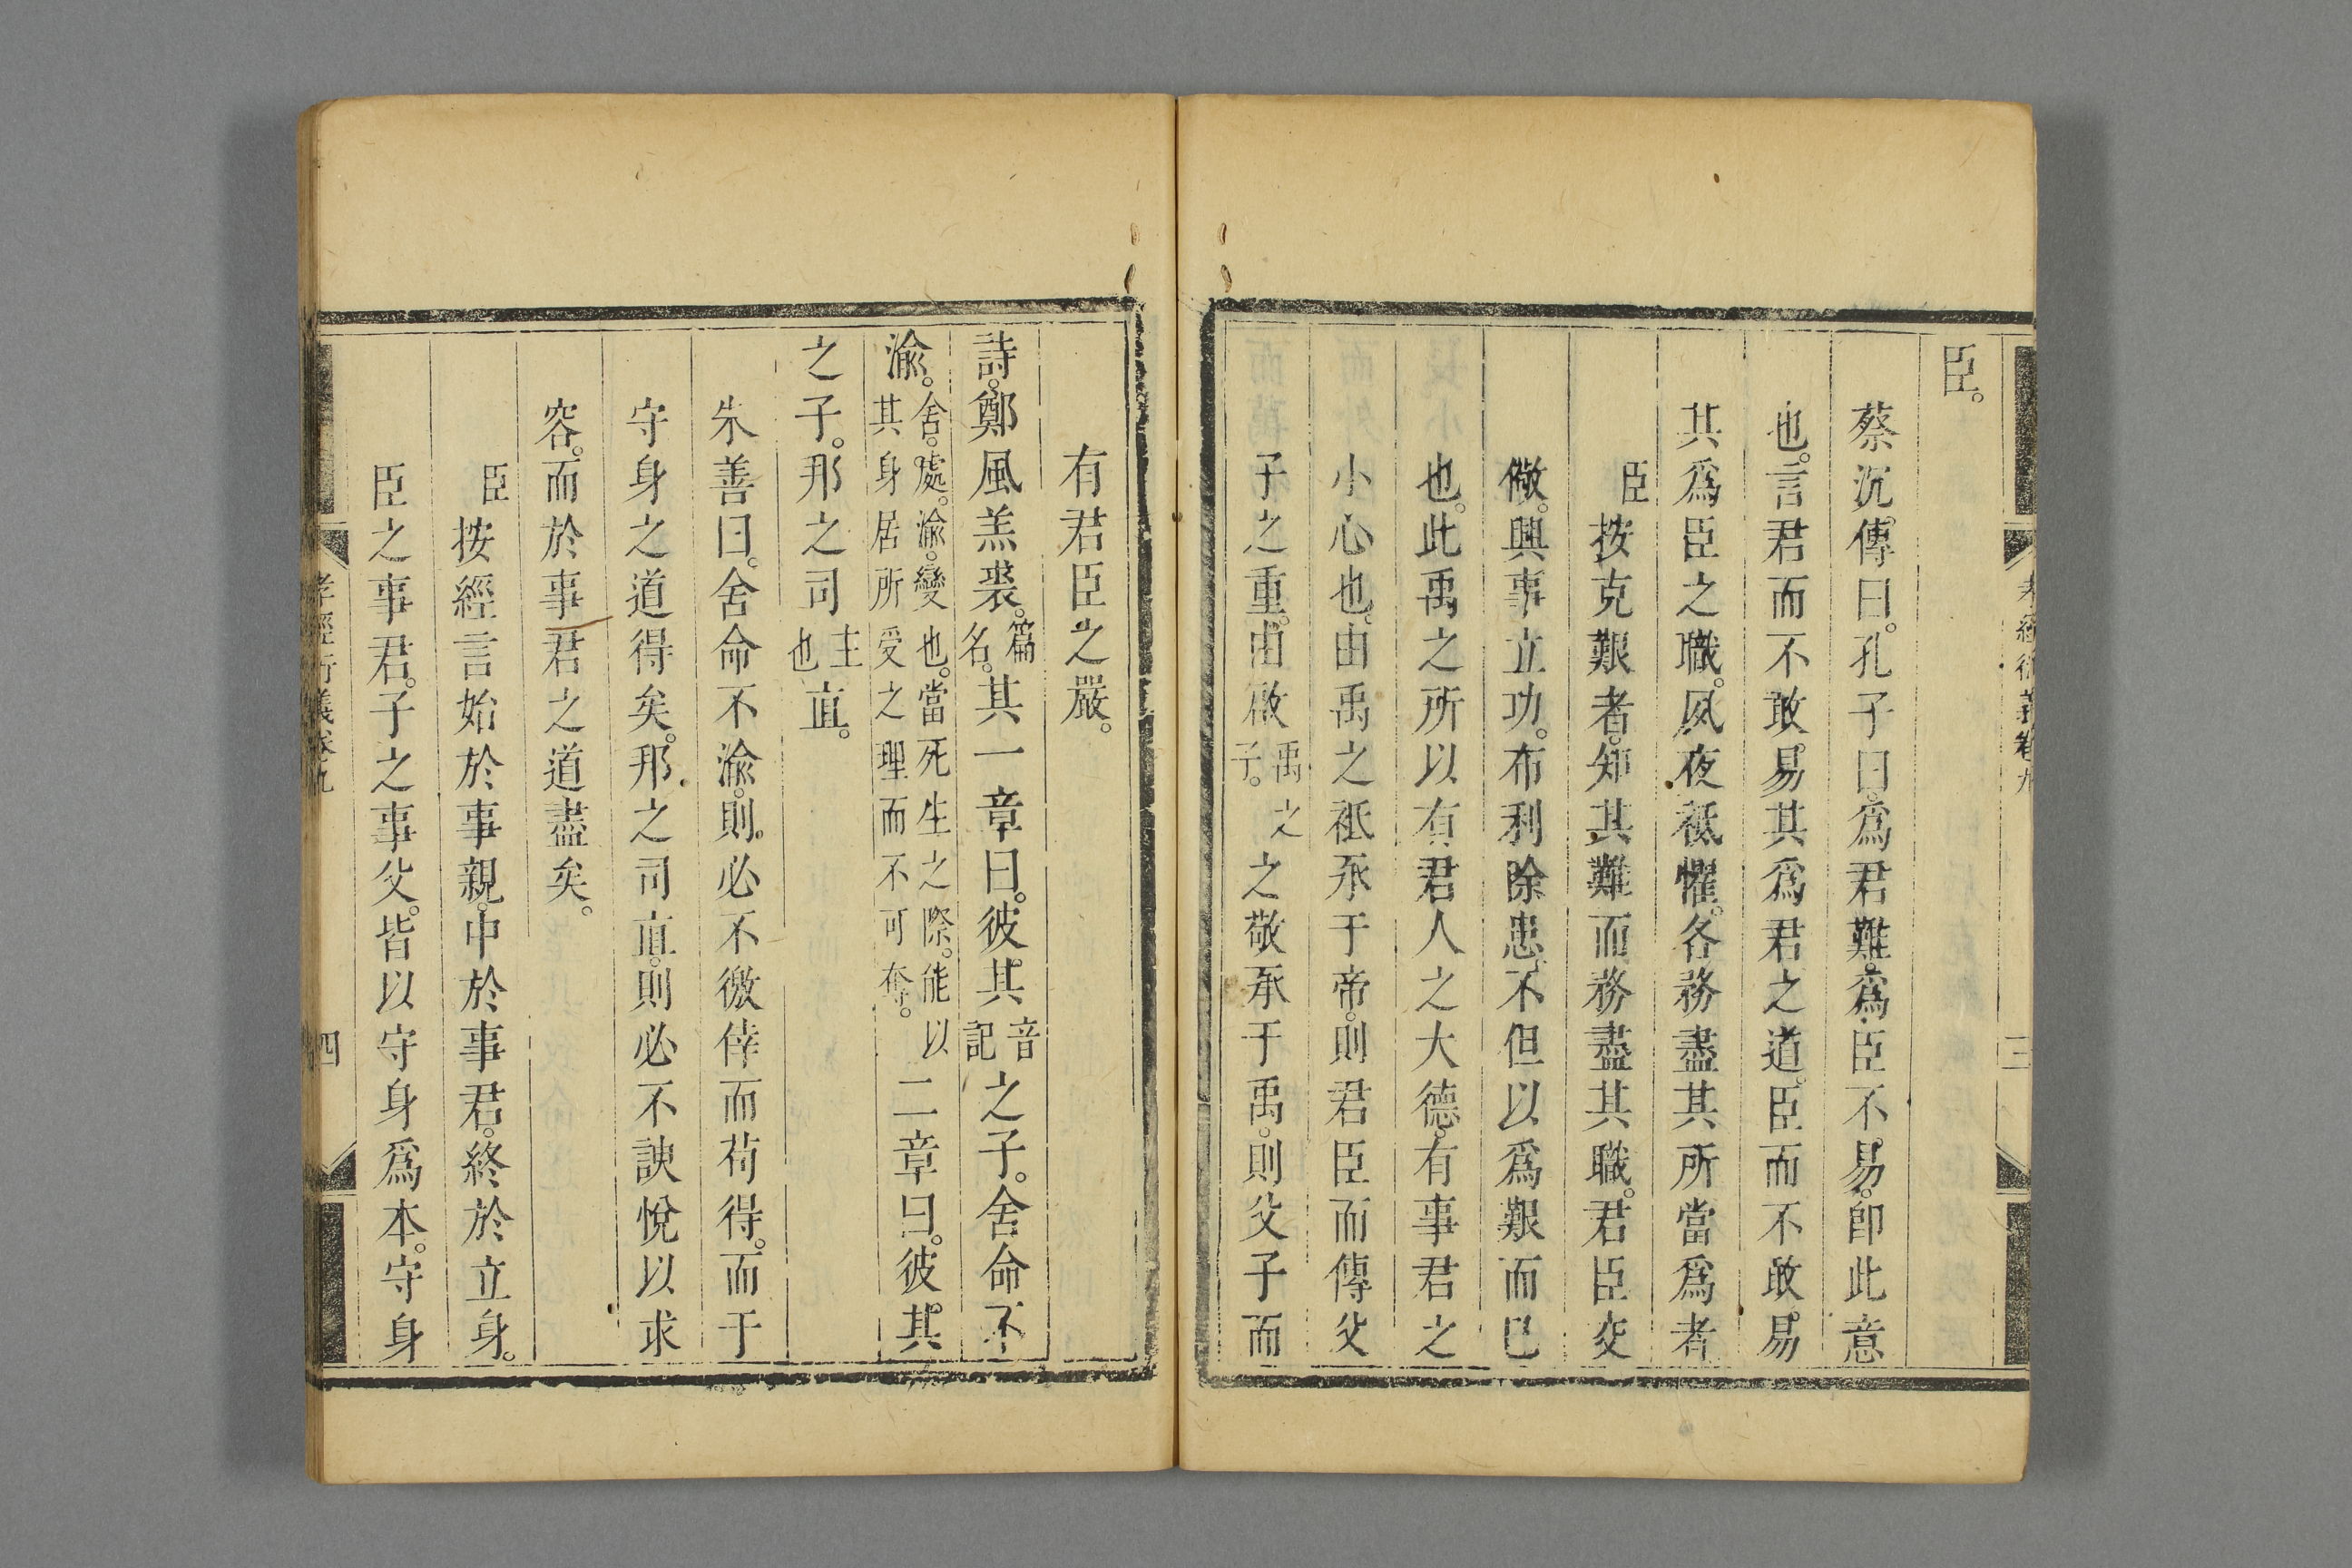 孝經衍義卷九
三
臣。
蔡沉傳曰。孔子曰。爲君難。爲臣不易。卽此意
也。言君而不敢易其爲君之道。臣而不敢易
其爲臣之職。夙夜祗懼。各務盡其所當爲者
臣按克艱者。知其難而務盡其職。君臣交
儆。興事立功。布利除患。不但以爲艱而已
也。此禹之所以有君人之大德。有事君之
小心也。由禹之祗承于帝。則君臣而傳父
子之重。由啟禹之子。之敬承于禹。則父子而
有君臣之嚴。
詩。鄭風羔裘。篇名。其一章曰。彼其音記之子。舍命不
渝。舍。處。渝。變也。當死生之際。能以其身居所受之理而不可奪。二章曰。彼其
之子。邦之司主也直。
朱善曰。舍命不渝。則必不徼倖而苟得。而于
守身之道得矣。邦之司直。則必不諛悅以求
容。而於事君之道盡矣。
臣按經言始於事親。中於事君。終於立身。
臣之事君。子之事父。皆以守身爲本。守身
孝經衍義卷九
四